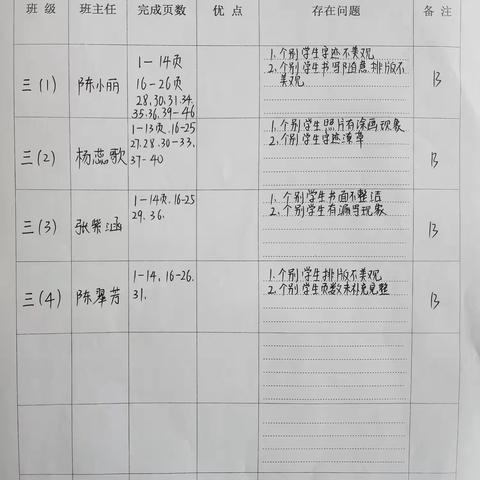 班 级 班主任 完成页数 优 点 存在问题 备 注
三(1) 陈小丽
1-14页
16-26页
28.30.31.34.
35.36.39-46
1、个别学生字迹不美观
2、个别学生书写随意排版不
美观
B
三(2) 杨蕊歌
1-13页.16-25
27.28.30-33.
37-40
1、个别学生照片有涂画现象
2、个别学生字迹潦草
B
三(3) 张紫涵
1-14页.16-25
29.36.
1、个别学生书面不整洁
2、个别学生有漏写现象
B
三(4) 陈翠芳
1-14.16-26.
31.
1、个别学生排版不美观
2、个别学生页数未补充完整
B